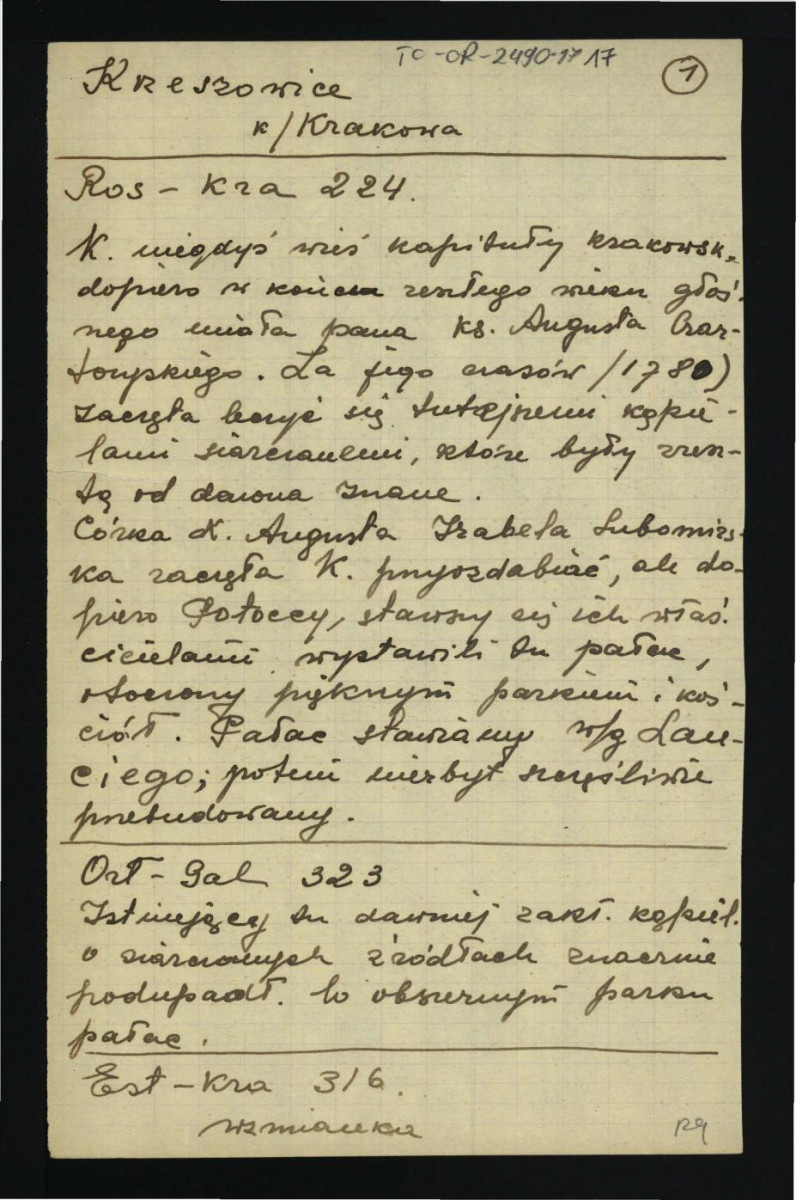 TO-OR-2490-17 17
1
Krzeszowice
k/Krakowa
Ros – Kra 224.
K. niegdyś wieś kapituły krakowsk.,
dopiero w końcu zeszłego wieku głoś-
nego miała pana ks. Augusta Czar-
toryskiego. Za jego czasów /1780)
zaczęła leczyć się tutejszemi kąpie-
lami siarczanemi, które były zresz-
tą od dawna znane.
Córka X. Augusta Izabela Lubomirs-
ka zaczęła K. przyozdabiać, ale do-
piero Potoccy, stawszy się ich właś-
cicielami wystawili tu pałac,
otoczony pięknym parkiem i koś-
ciół. Pałac stawiany w/g Lan-
ciego; potem niezbyt szczęśliwie
przebudowany.
Orł – Gal 323
Istniejący tu dawniej zakł. kąpiel.
o siarczanych źródłach znacznie
podupadł. W obszernym parku
pałac.
Est – Kra 316.
wzmianka